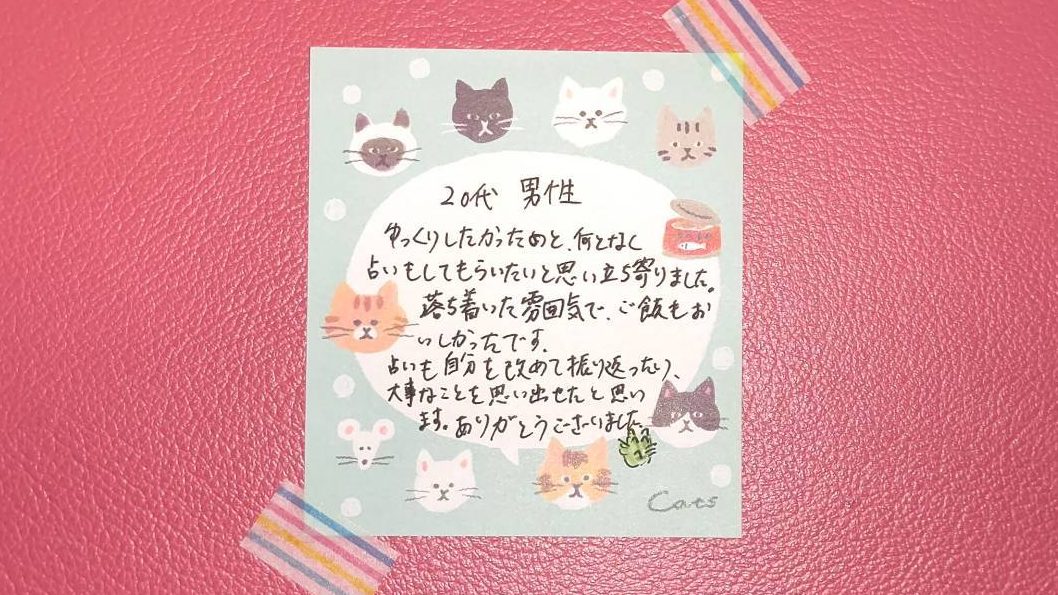 20代 男性
ゆっくりしたかったのと、何となく
占いもしてもらいたいと思い立ち寄りました。
落ち着いた雰囲気で、ご飯もお
いしかったです。
占いも自分を改めて振り返ったり、
大事なことを思い出せたと思い
ます。ありがとうございました。
Cats